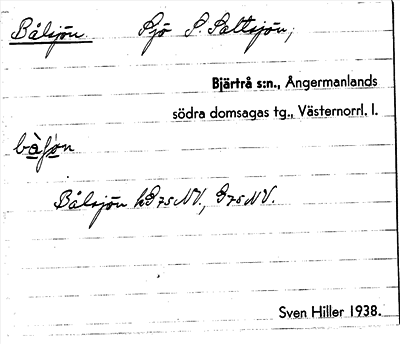 Bålsjön. Sjö S. Saltsjön,
Bjärtrå s:n., Ångermanlands
södra domsagas tg., Västernorrl. l.
Bålsjön
Sven Hiller 1938.